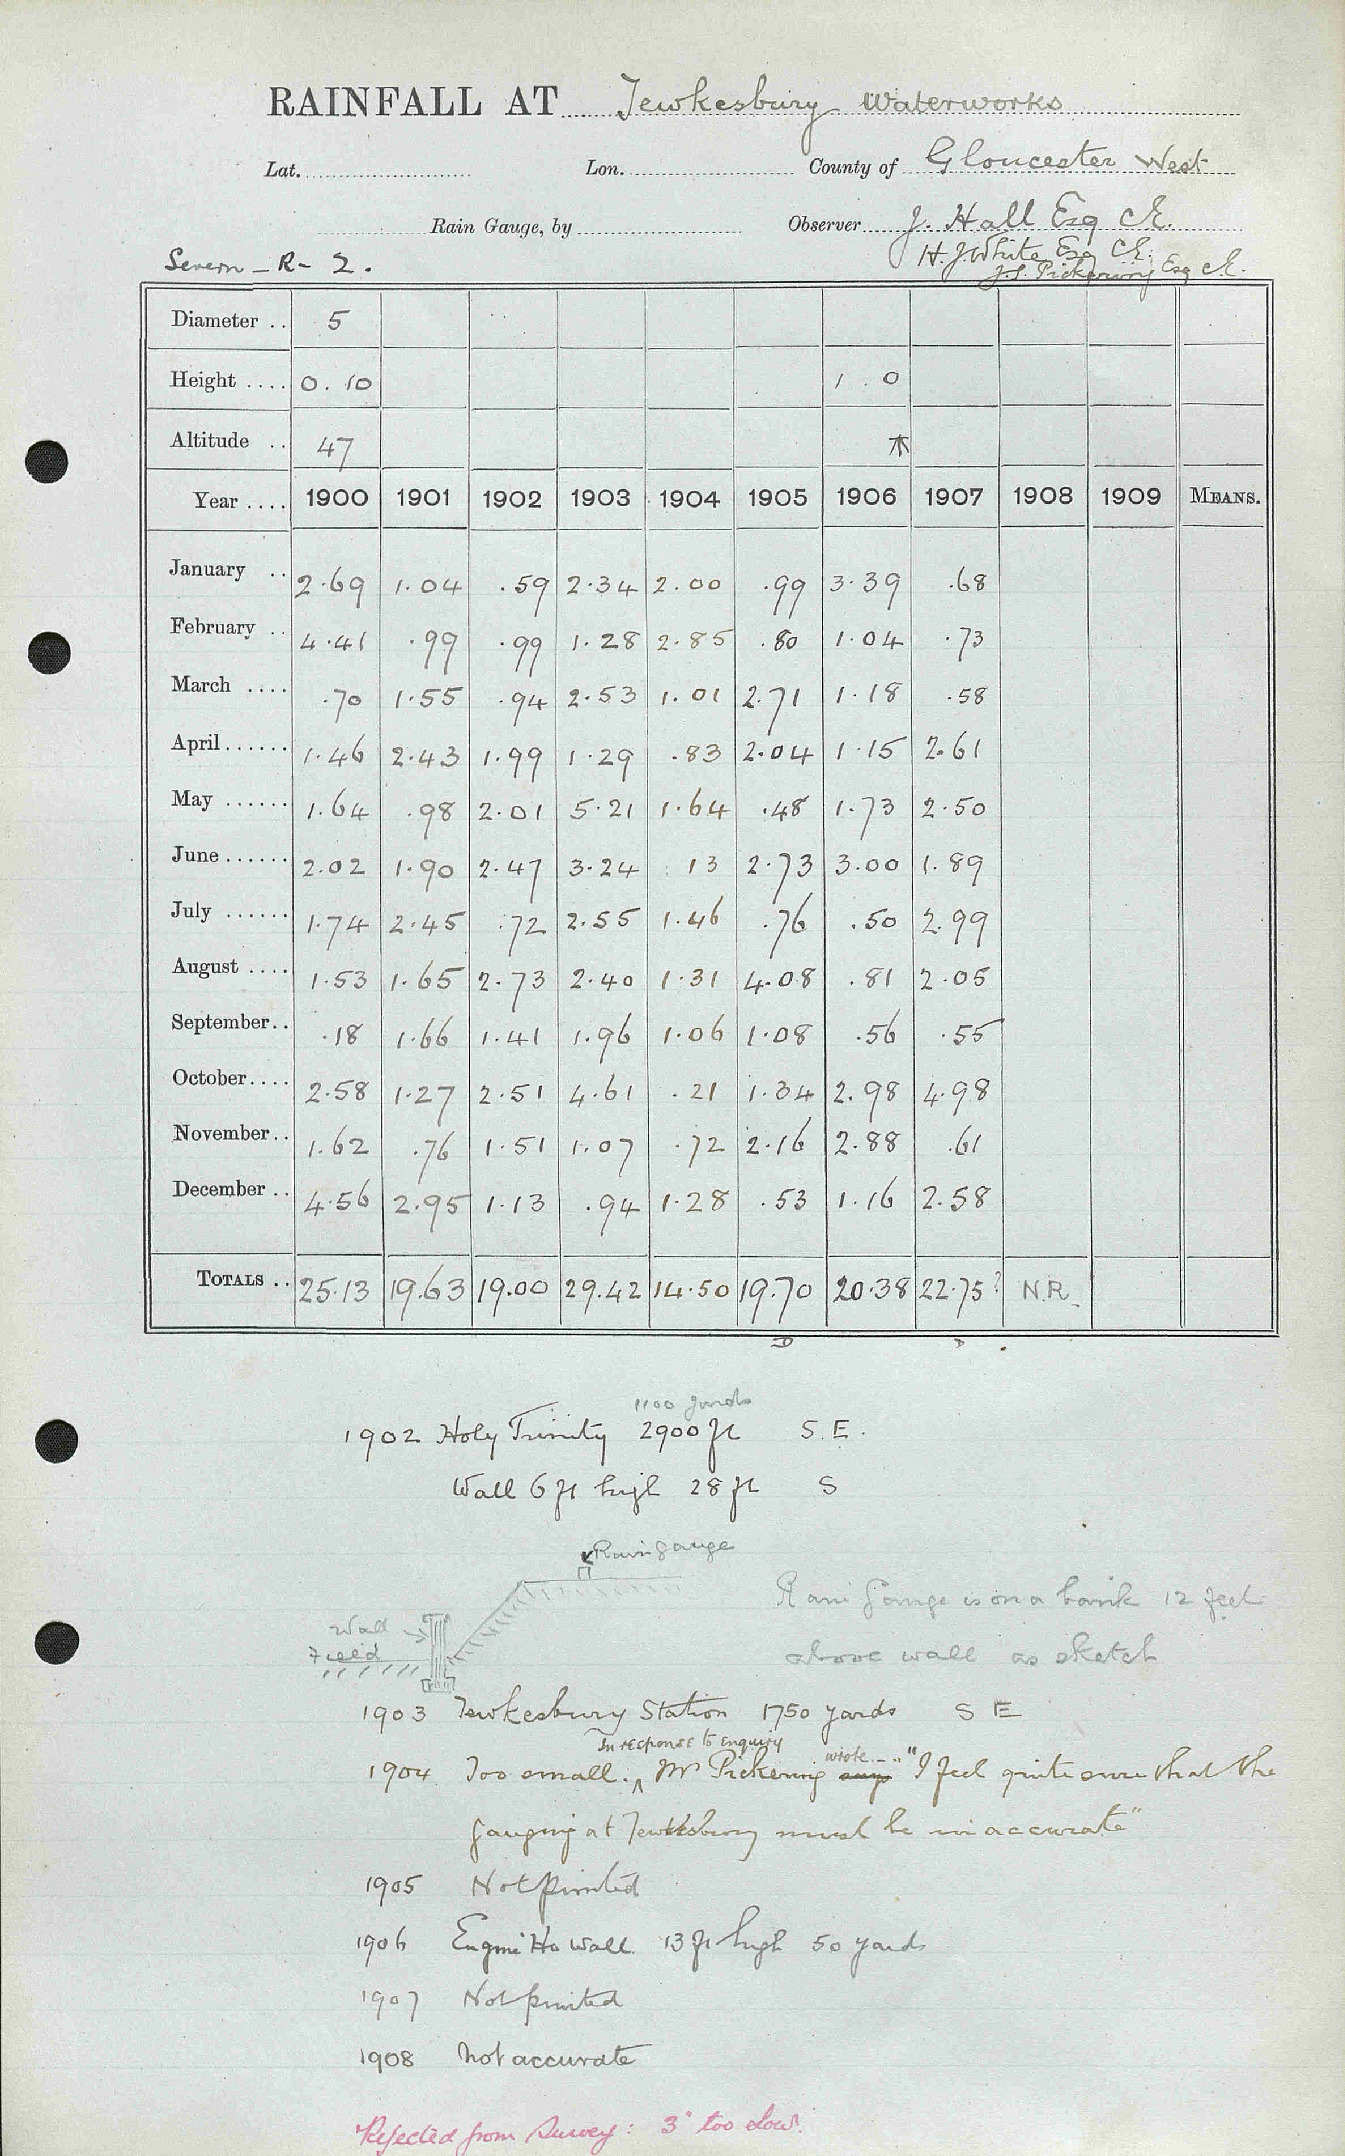 RAINFALL AT Tewkesbury Waterworks
Lat. Lon. County of Gloucester West
Rain Gauge, by Observer J. Hall Esq C.E.
Severn - R - 2. H. J. White Esq C.E.
J.S. Pickering Esq C.E.
Diameter .. 5
Height .... 0.10 1.0
Altitude .. 47
Year .... 1900 1901 1902 1903 1904 1905 1906 1907 1908 1909 MEANS.
January .. 2.69 1.04 .59 2.34 2.00 .99 3.39 .68
February .. 4.41 .99 .99 1.28 2.85 .80 1.04 .73
March .... .70 1.55 .94 2.53 1.01 2.71 1.18 .58
April ...... 1.46 2.43 1.99 1.29 .83 2.04 1.15 2.61
May ...... 1.64 .98 2.01 5.21 1.64 .48 1.73 2.50
June ...... 2.02 1.90 2.47 3.24 .13 2.73 3.00 1.89
July ...... 1.74 2.45 .72 2.55 1.46 .76 .50 2.99
August .... 1.53 1.65 2.73 2.40 1.31 4.08 .81 2.05
September.. .18 1.66 1.41 1.96 1.06 1.08 .56 .55
October.... 2.58 1.27 2.51 4.61 .21 1.34 2.98 4.98
November.. 1.62 .76 1.51 1.07 .72 2.16 2.88 .61
December .. 4.56 2.95 1.13 .94 1.28 .53 1.16 2.58
TOTALS .. 25.13 19.63 19.00 29.42 14.50 19.70 20.38 22.75? N.R.
D D
1100 yards
1902 Holy Trinity 2900 ft S.E.
Wall 6 ft high 28 ft S
Rain gauge
Rain Gauge is on a bank 12 feet
Wall
Field
above wall as sketch
1903 Tewkesbury Station 1750 yards S E
In response to enquiry wrote
1904 Too small. Mr Pickering says "I feel quite sure that the
gauging at Tewkesbury must be inaccurate"
1905 Not printed
1906 Engine Ho wall 13 ft high 50 yards
1907 Not printed
1908 Not accurate
Rejected from Survey: 3" too low.